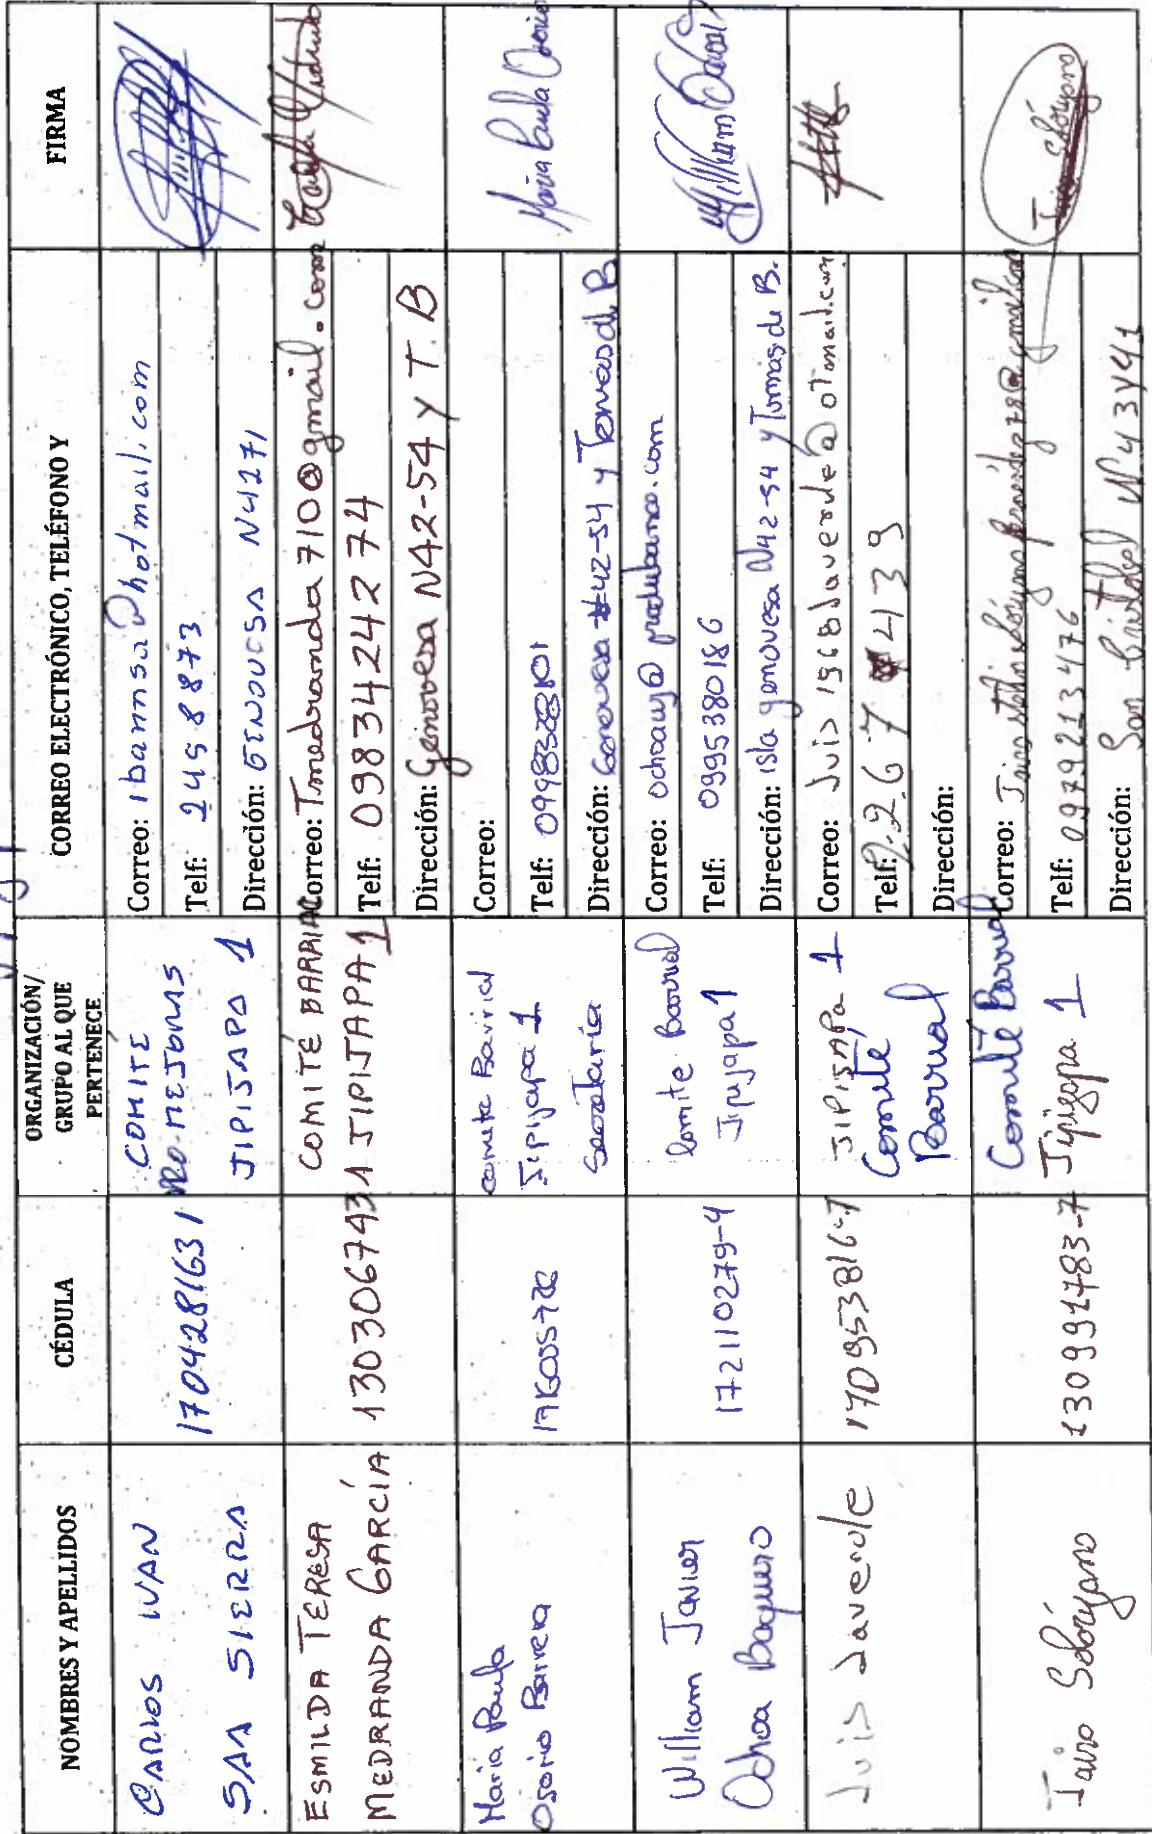 NOMBRES Y APELLIDOS
CÉDULA
ORGANIZACIÓN/
GRUPO AL QUE
PERTENECE
CORREO ELECTRÓNICO, TELÉFONO Y
FIRMA
CARLOS IVAN
SAA SIERRA
1704281631
COMITE
PRO MEJORAS
JIPIJAPA 1
Correo: Ibannsa@hotmail.com
Telf: 2458873
Dirección: GENOVESA N4271
ESMILDA TERESA
MEDRANDA GARCÍA
1303067431
COMITÉ BARRIAL
JIPIJAPA 1
Correo: Tmedranda710@gmail.com
Telf: 0983424274
Dirección: Genovesa N42-54 y T. B
María Paula
Osorio Barrera
comite Barrial
Jipijapa 1
Secretaria
Correo:
Telf:
Dirección: Genovesa #42-54 y Tomas de B
Maria Paula Osorio
William Javier
Ochoa Baquero
172110279-4
Comite Barrial
Jipijapa 1
Correo: ochoawj@produbanco.com
Telf: 0995380186
Dirección: isla genovesa N42-54 y Tomás de B.
William
Luis Laverde
170953816-7
JIPIJAPA 1
Comité
Barrial
Correo: Luis1968laverde@otmail.com
Telf: 2267 439
Dirección:
Jairo Solórzano
130991783-7
Comité Barrial
Jipijapa 1
Correo:
Telf: 0979213476
Dirección: San Cristobal N43y41